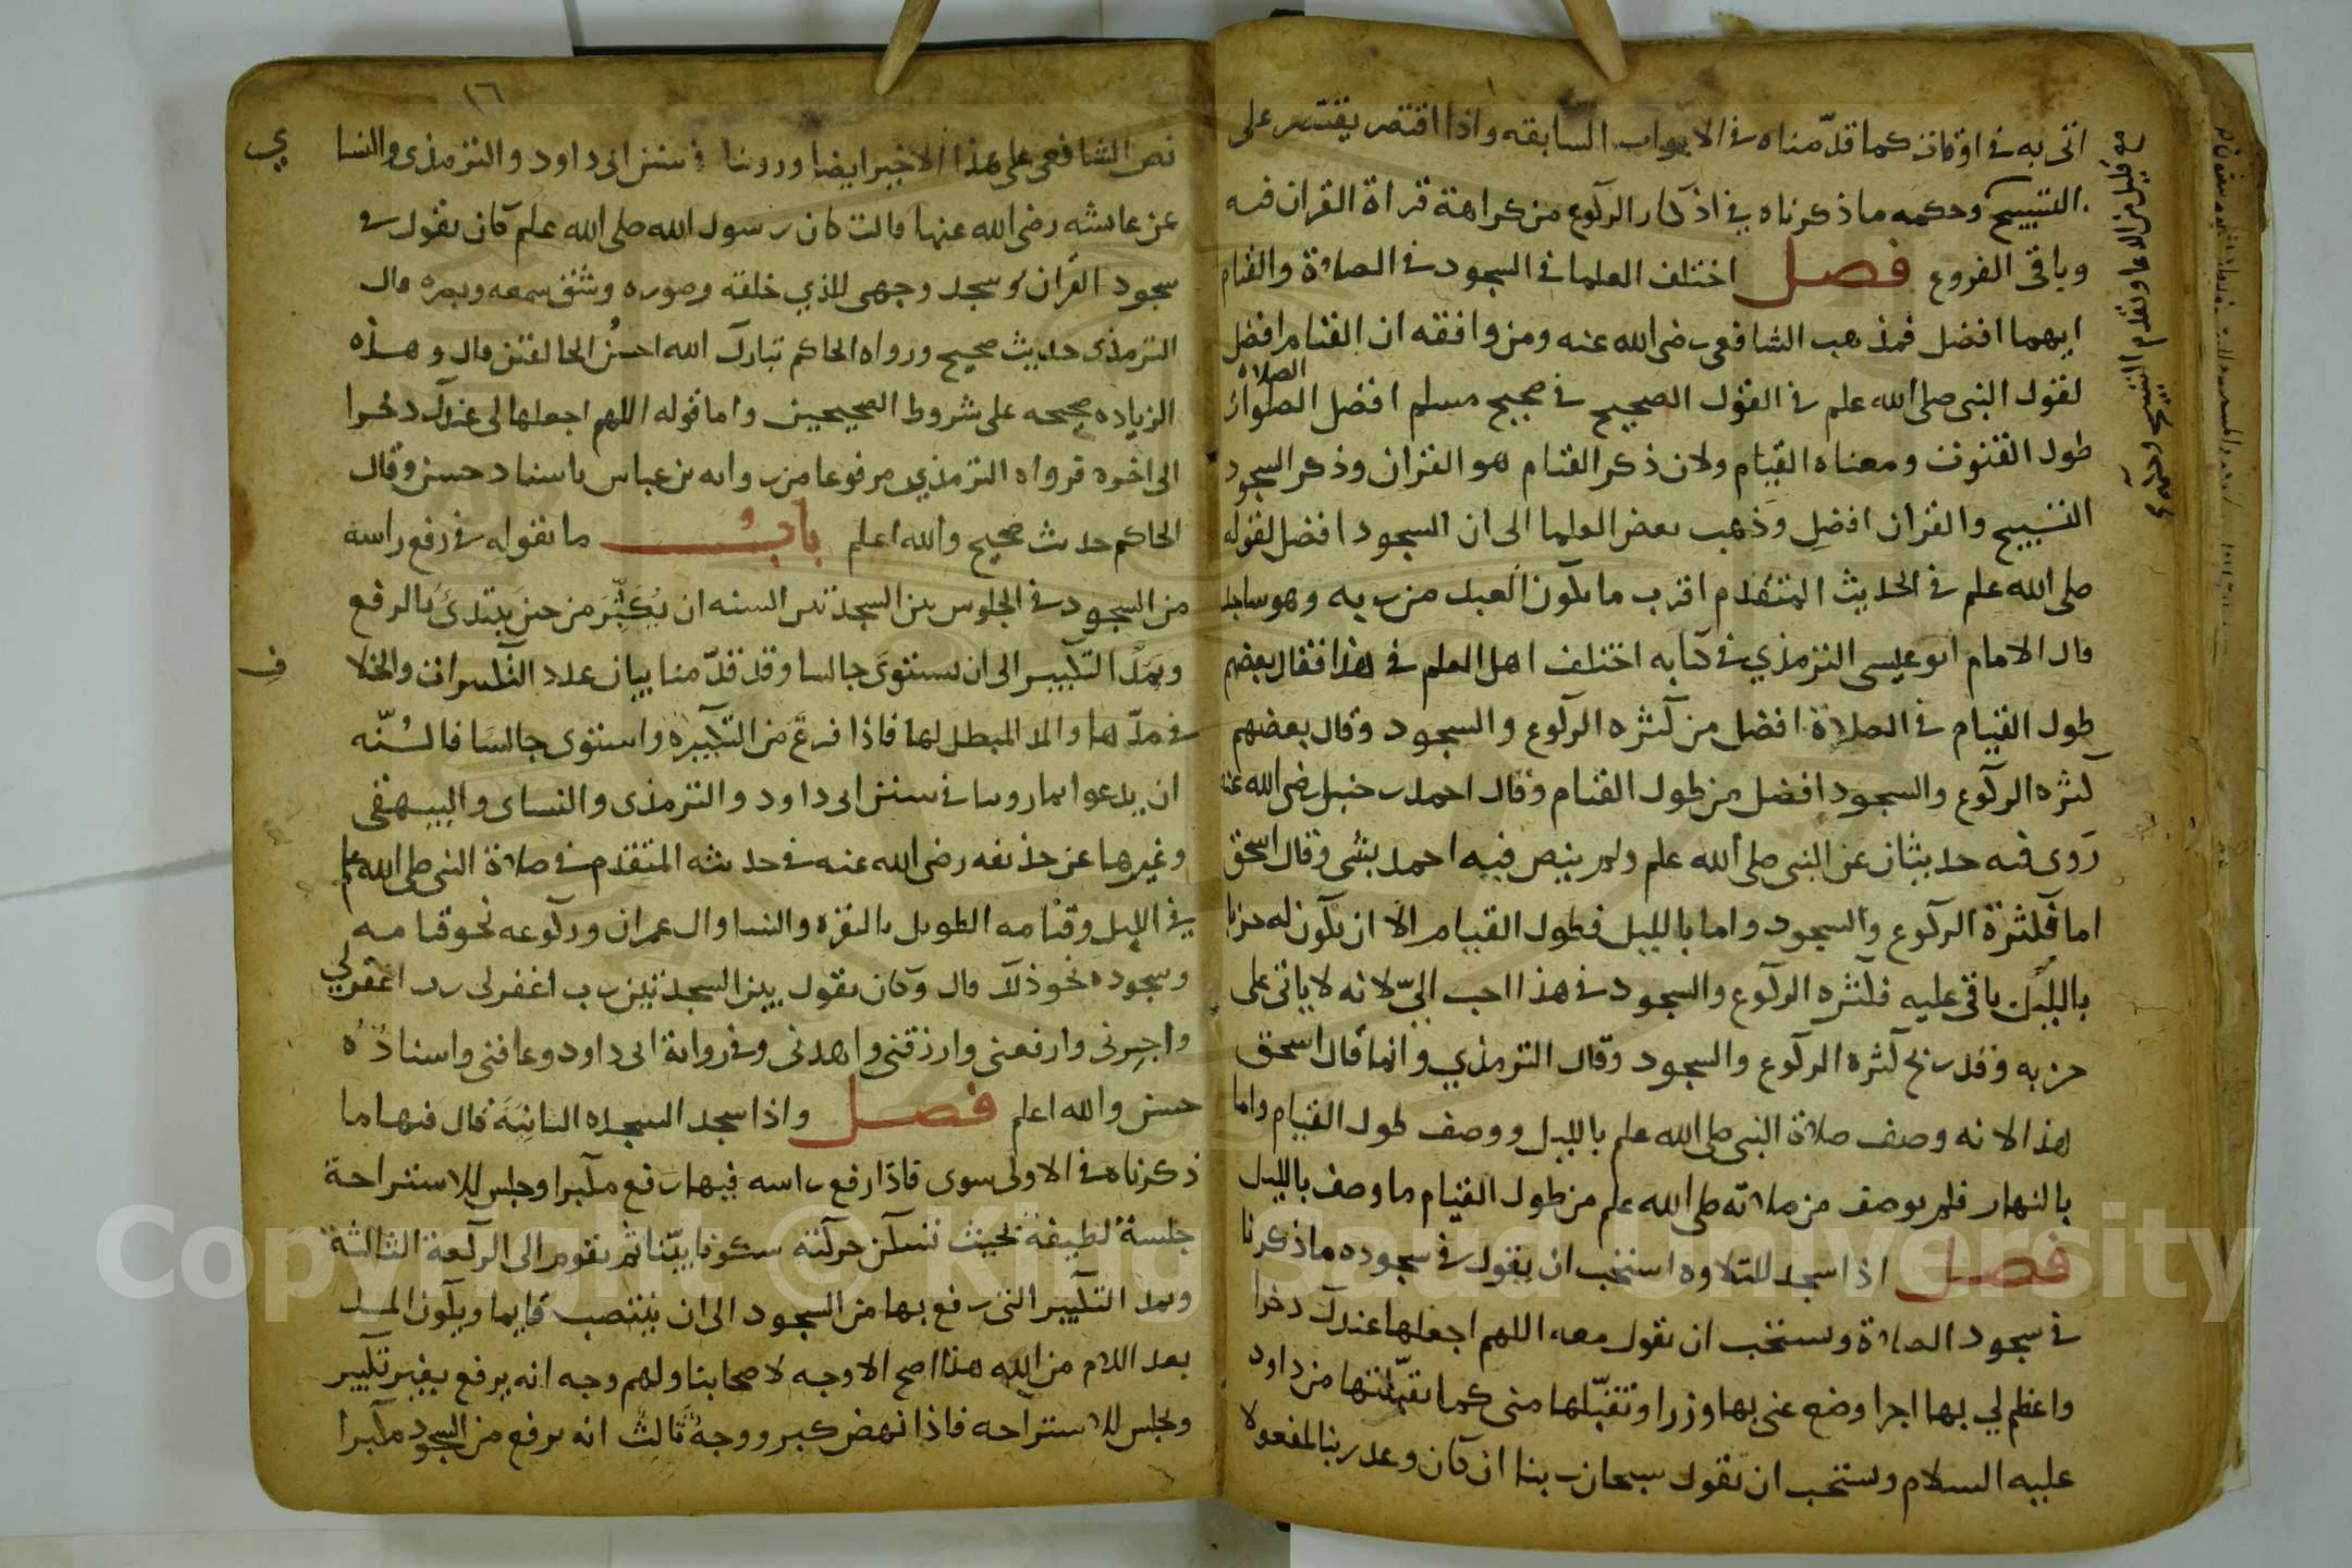 اتى به فى اوقات كما قدّمناه فى الابواب السابقه واذا اقتصر يقتصر على
التسبيح وحكمه ما ذكرناه فى اذكار الركوع من كراهة قراة القران فيه
وباقى الفروع فصل اختلف العلما فى السجود فى الصلاة والقيام
ايهما افضل فمذهب الشافعى رضى الله عنه ومن وافقه ان القيام افضل
لقول النبى صلى الله علم فى القول الصحيح فى صحيح مسلم افضل الصلاه
طول القنوت ومعناه القيام ولان ذكر القيام هو القران وذكر السجود
التسبيح والقران افضل وذهب بعض العلما الى ان السجود افضل لقوله
صلى الله علم فى الحديث المتقدم اقرب ما يكون العبد من ربه وهو ساجد
قال الامام ابو عيسى الترمذي فى كتابه اختلف اهل العلم فى هذا فقال بعضهم
طول القيام فى الصلاة افضل من كثره الركوع والسجود وقال بعضهم
كثره الركوع والسجود افضل من طول القيام وقال احمد بن حنبل رضى الله عنه
روى فيه حديثان عن النبى صلى الله علم ولم ينص فيه احمد بشى وقال اسحق
اما فكثرة الركوع والسجود واما بالليل فطول القيام الا ان يكون له حزبا
بالليل ياتى عليه فكثره الركوع والسجود فى هذا احب الىّ لانه لا ياتى على
حزبه وقد ربح كثرة الركوع والسجود وقال الترمذي وانما قال اسحق
هذا لانه وصف صلاة النبى صلى الله علم بالليل ووصف طول القيام واما
بالنهار فلم يوصف من صلاته صلى الله علم من طول القيام ما وصف بالليل
فصل اذا سجد للتلاوه استحب ان يقول فى سجوده ما ذكرنا
فى سجود الصلاة ويستحب ان يقول معه اللهم اجعلها عندك دخرا
واعظم لي بها اجرا وضع عنى بها وزرا وتقبّلها منى كما تقبّلتها من داود
عليه السلام ويستحب ان يقول سبحان ربنا ان كان وعد ربنا لمفعولا
١٦
نص الشافعى على هذا الاخير ايضا وروينا فى سنن ابى داود والترمذى والنسا
ي
عن عائشه رضى الله عنها قالت كان رسول الله صلى الله علم كان يقول فى
سجود القران سجد وجهى للذي خلقه وصوره وشق سمعه وبصره قال
الترمذى حديث صحيح ورواه الحاكم تبارك الله احسن الخالقين قال وهذه
الزياده صحيحه على شروط الصحيحين واما قوله اللهم اجعلها لى عندك دخرا
الى اخره فرواه الترمذي مرفوعا من روايه بن عباس باسناد حسن وقال
الحاكم حديث صحيح والله اعلم باب ما يقوله فى رفع راسه
من السجود فى الجلوس بين السجدتين السنه ان يُكَبِّرَ من حين يبتدئ بالرفع
ويمدّ التكبير الى ان يستوى جالسا وقد قدّمنا بيان عدد التكبيرات والخلا
ف
فى مدّها والمد المبطل لها فاذا فرغ من التكبيره واستوى جالسا فالسُنّه
ان يدعوا بما روينا فى سنن ابى داود والترمذى والنساى والبيهقى
وغيرها عن حذيفه رضى الله عنه فى حديثه المتقدم فى صلاة النبى صلى الله علم
فى الليل وقيامه الطويل بالبقره والنسا وال عمران وركوعه نحو قيامه
وسجوده نحو ذلك قال وكان يقول بين السجدتين رب اغفر لى رب اغفر لي
واجبرنى وارفعنى وارزقنى واهدنى وفى رواية ابى داود وعافنى واسناده
حسن والله اعلم فصل واذا سجد السجده الثانية قال فيها ما
ذكرناه فى الاولى سوى فاذا رفع راسه فيها رفع مكبرا وجلس للاستراحة
جلسة لطيفة بحيث تسكن حركته سكونا بيّنا ثم يقوم الى الركعة الثالثة
ويمد التكبير التى رفع بها من السجود الى ان ينتصب قايما ويكون المد
بعد اللام من الله هذا اصح الاوجه لاصحابنا ولهم وجه انه يرفع بغير تكبير
ويجلس للاستراحه فاذا نهض كبر ووجهٌ ثالثٌ انه يرفع من السجود مكبرا
Copyright © King Saud University